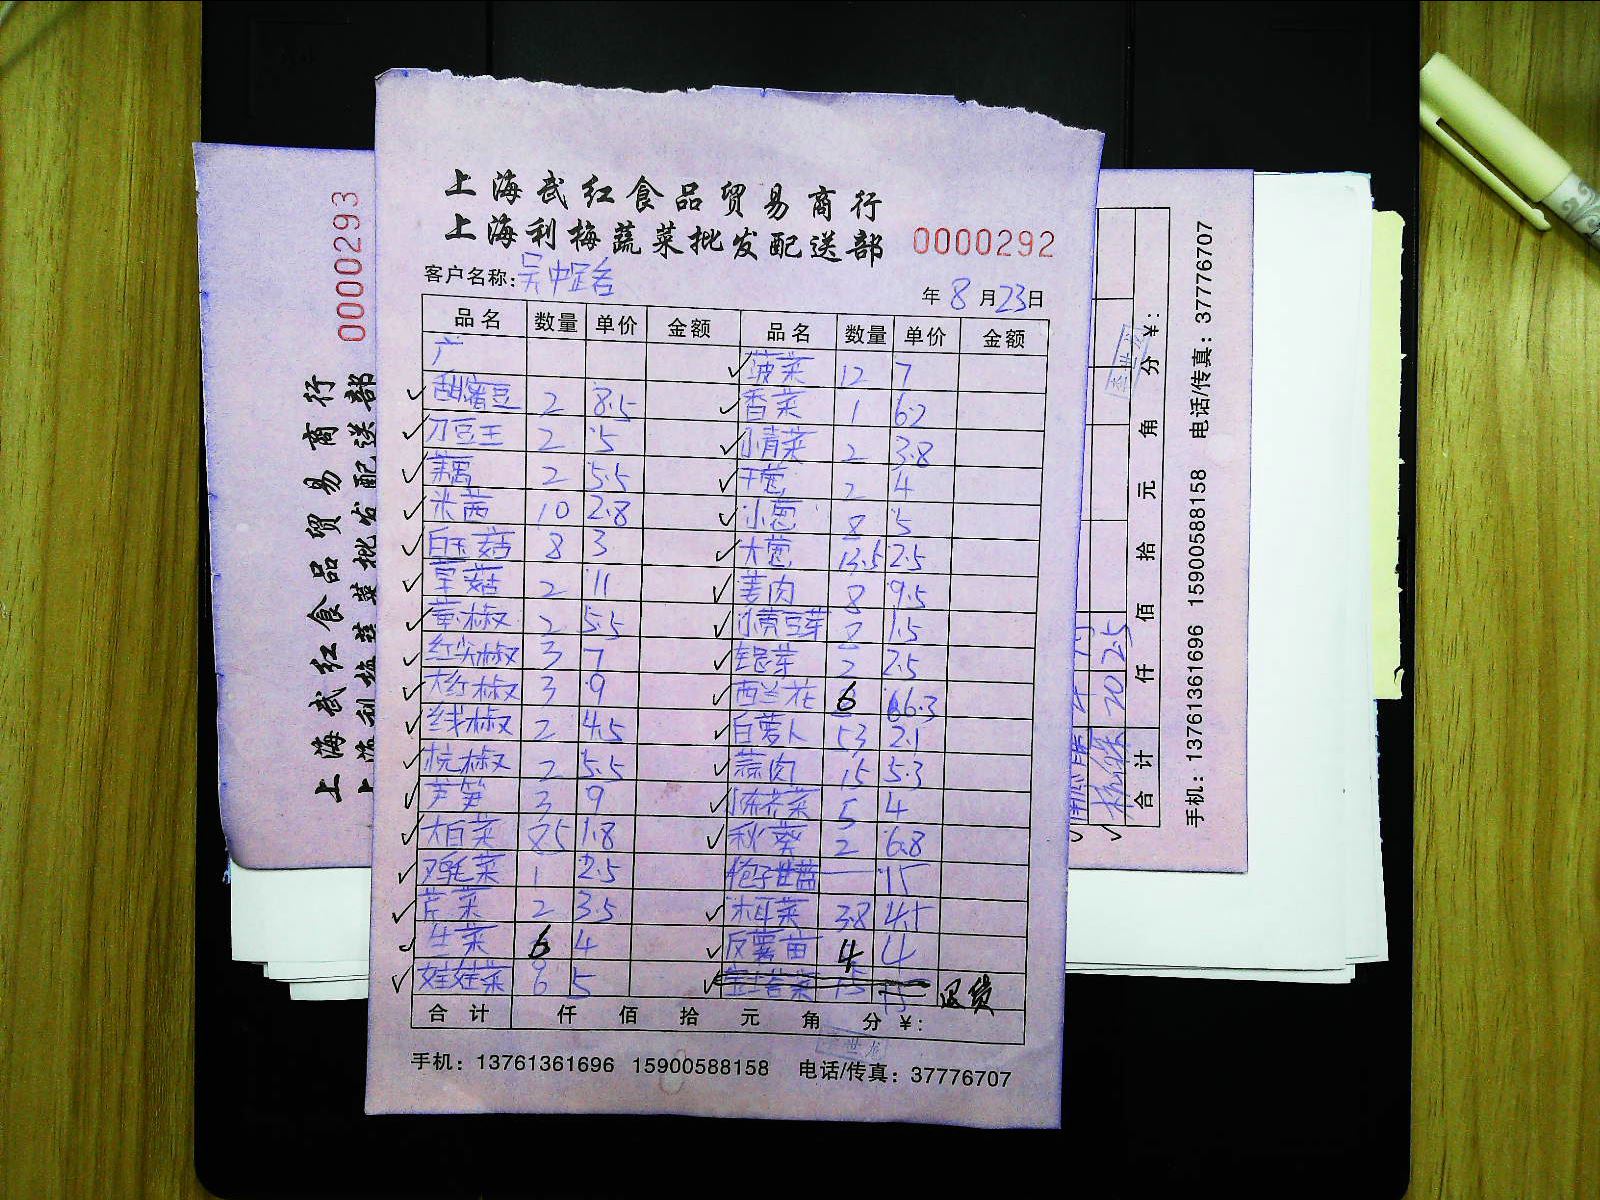 上海武红食品贸易商行
上海利梅蔬菜批发配送部 0000292
客户名称: 吴中路 年 8 月 23 日
品名 数量 单价 金额 品名 数量 单价 金额
菠菜 12 7
甜蜜豆 2 8.5 香菜 1 6.2
刀豆王 2 5 小青菜 2 3.8
藕 2 5.5 干葱 2 4
米茜 10 2.8 小葱 8 5
白玉菇 8 3 大葱 13.5 2.5
草菇 2 11 姜肉 8 9.5
黄椒 2 5.5 小黄豆芽 8 1.5
红尖椒 3 7 银芽 2 2.5
大红椒 3 9 西兰花 6 6.3
线椒 2 4.5 白萝卜 53 2.1
杭椒 2 5.5 蒜肉 15 5.3
芦笋 3 9 小棠菜 5 4
大白菜 85 1.8 秋葵 2 6.8
鸡毛菜 1 2.5 孢子甘蓝 15
芹菜 2 3.5 木耳菜 3.8 4.5
生菜 6 4 反薯苗 4 4
娃娃菜 6 5 15 退货
合计 仟 佰 拾 元 角 分 ¥:
手机: 13761361696 15900588158 电话/传真: 37776707
0000293
上海武红食品贸易商行
合计 仟 佰 拾 元 角 分 ¥:
手机: 13761361696 15900588158 电话/传真: 37776707